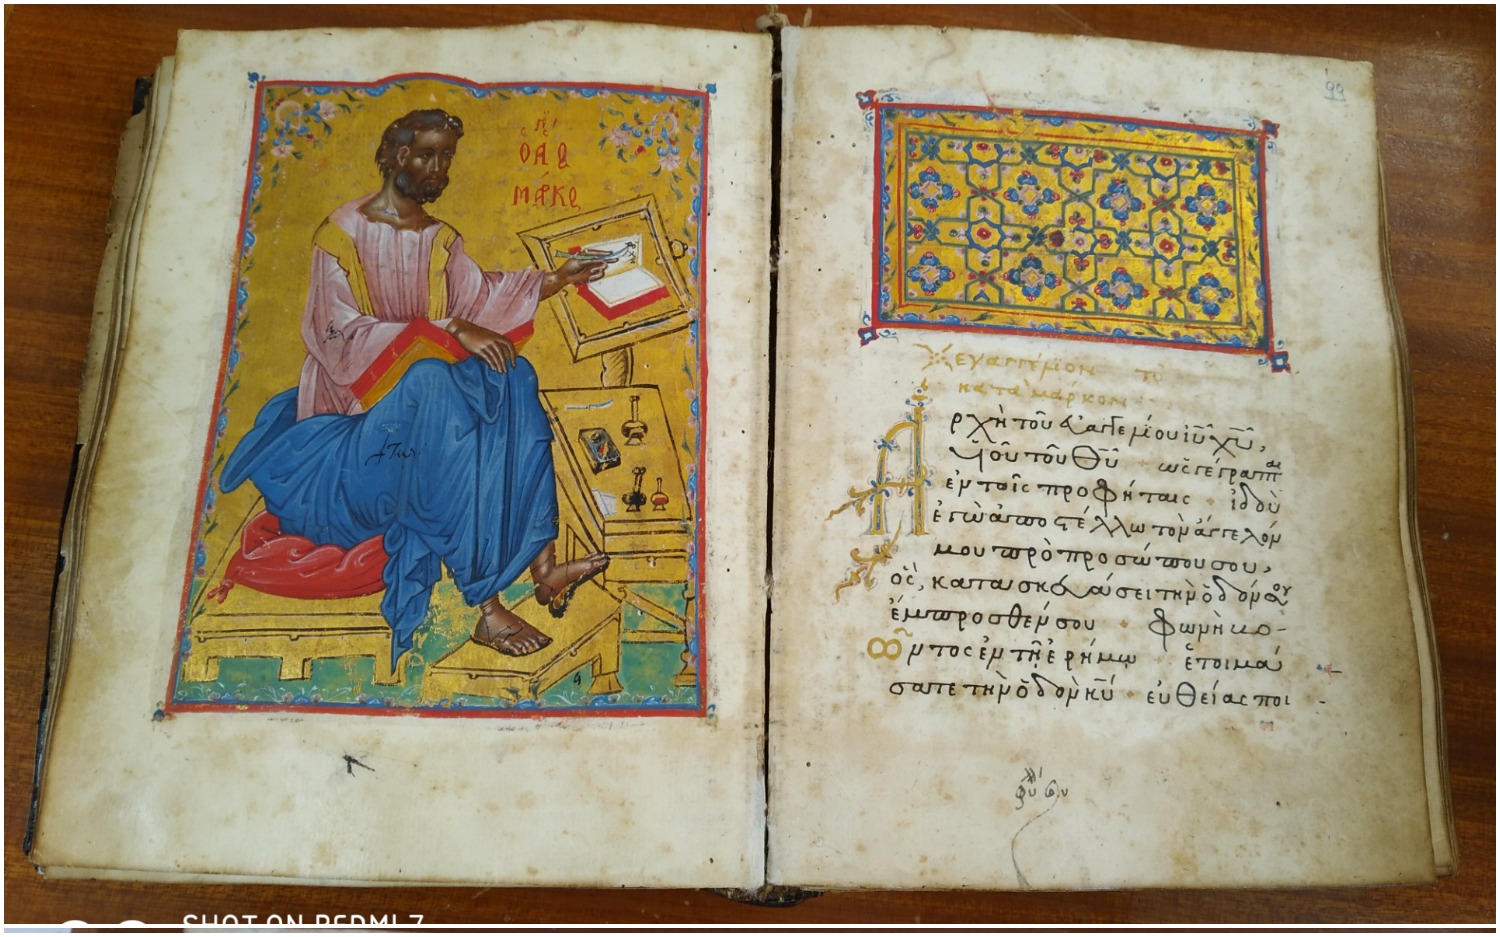 Ὁ ἅ
ΜΆΡΚ
99
εὐαγγέλιον τὸ
κατὰ μάρκον
Ἀρχὴ τοῦ εὐαγγελίου ἰῦ χῦ,
ὑιοῦ τοῦ θῦ ὡς γέγραπται
ἐν τοῖς προφήταις ἰδοὺ
ἐγὼ ἀποστέλλω τὸν ἄγγελόν
μου πρὸ προσώπου σου,
ὃς κατασκευάσει τὴν ὁδόν σου
ἔμπροσθέν σου φωνὴ βο-
ῶντος ἐν τῇ ἐρήμω ἑτοιμά
σατε τὴν ὁδὸν κῦ εὐθείας ποι
SHOT ON REDMI 7